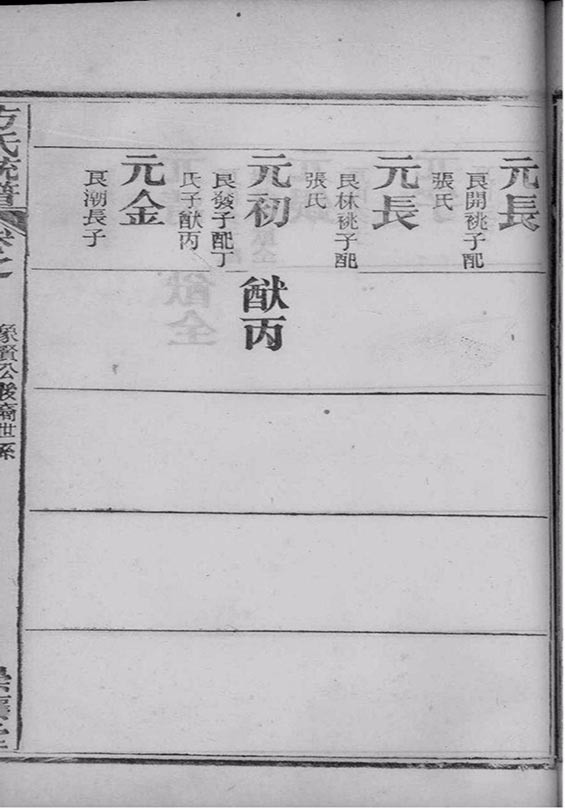 元長
良開祧子配
張氏
元長
良林祧子配
張氏
元初
良發子配丁
氏子猷丙
猷丙
元金
良潮長子
方氏統譜
卷之
象賢公後裔世系